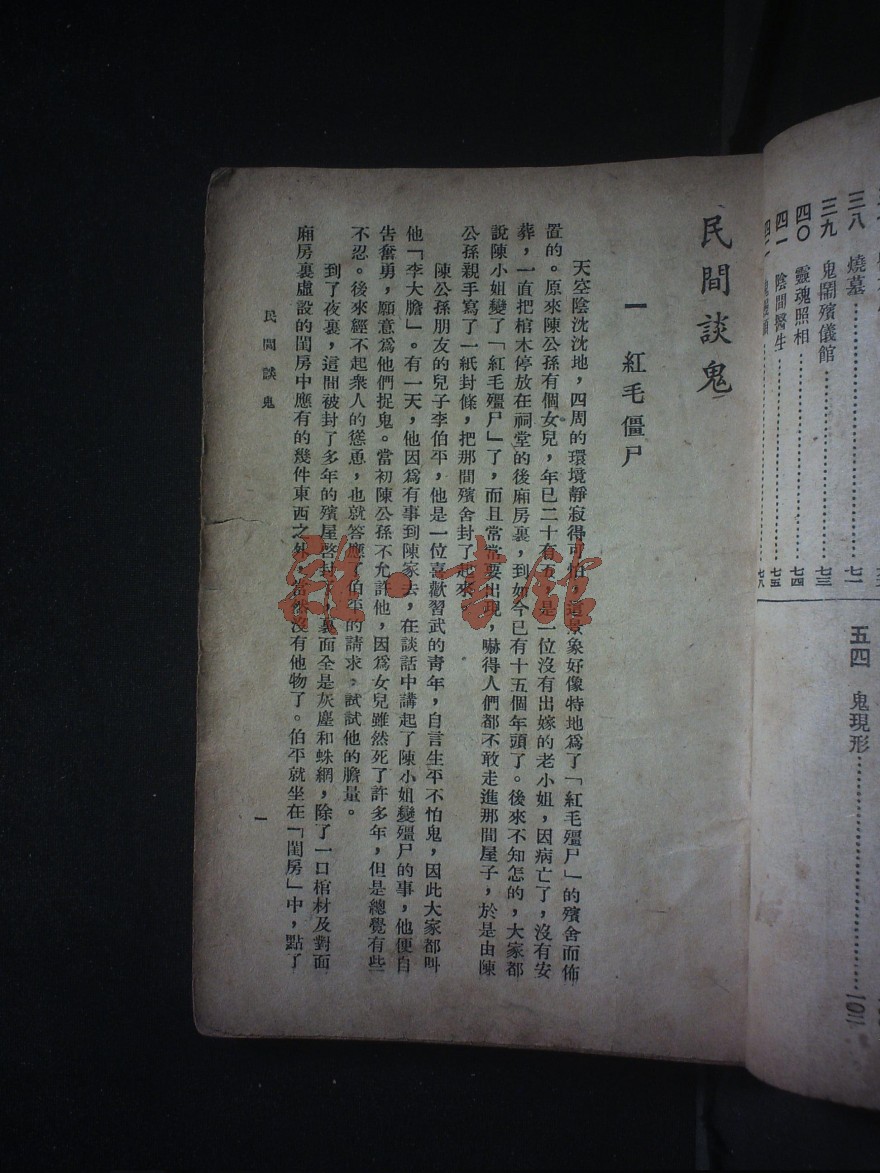 三八 燒墓……七一
三九 鬼鬧殯儀館……七三
四〇 靈魂照相……七四
四一 陰間醫生……七五
五四 鬼現形……一〇二
民間談鬼
一 紅毛僵尸
天空陰沈沈地，四周的環境靜寂得可怕，這景象好像特地爲了「紅毛殭尸」的殯舍而佈
置的。原來陳公孫有個女兒，年已二十有 是一位沒有出嫁的老小姐，因病亡了，沒有安
葬，一直把棺木停放在祠堂的後廂房裏，到如今已有十五個年頭了。後來不知怎的，大家都
說陳小姐變了「紅毛殭尸」了，而且常常要出現，嚇得人們都不敢走進那間屋子，於是由陳
公孫親手寫了一紙封條，把那間殯舍封了起來。
陳公孫朋友的兒子李伯平，他是一位喜歡習武的青年，自言生平不怕鬼，因此大家都叫
他「李大膽」。有一天，他因爲有事到陳家去，在談話中講起了陳小姐變殭尸的事，他便自
告奮勇，願意爲他們捉鬼。當初陳公孫不允許他，因爲女兒雖然死了許多年，但是總覺有些
不忍。後來經不起衆人的慫恿，也就答應了伯平的請求，試試他的膽量。
到了夜裏，這間被封了多年的殯屋啓封了，裏面全是灰塵和蛛網，除了一口棺材及對面
廂房裏虛設的閨房中應有的幾件東西之外，當然沒有他物了。伯平就坐在「閨房」中，點了
民間談鬼
一
雜·書館